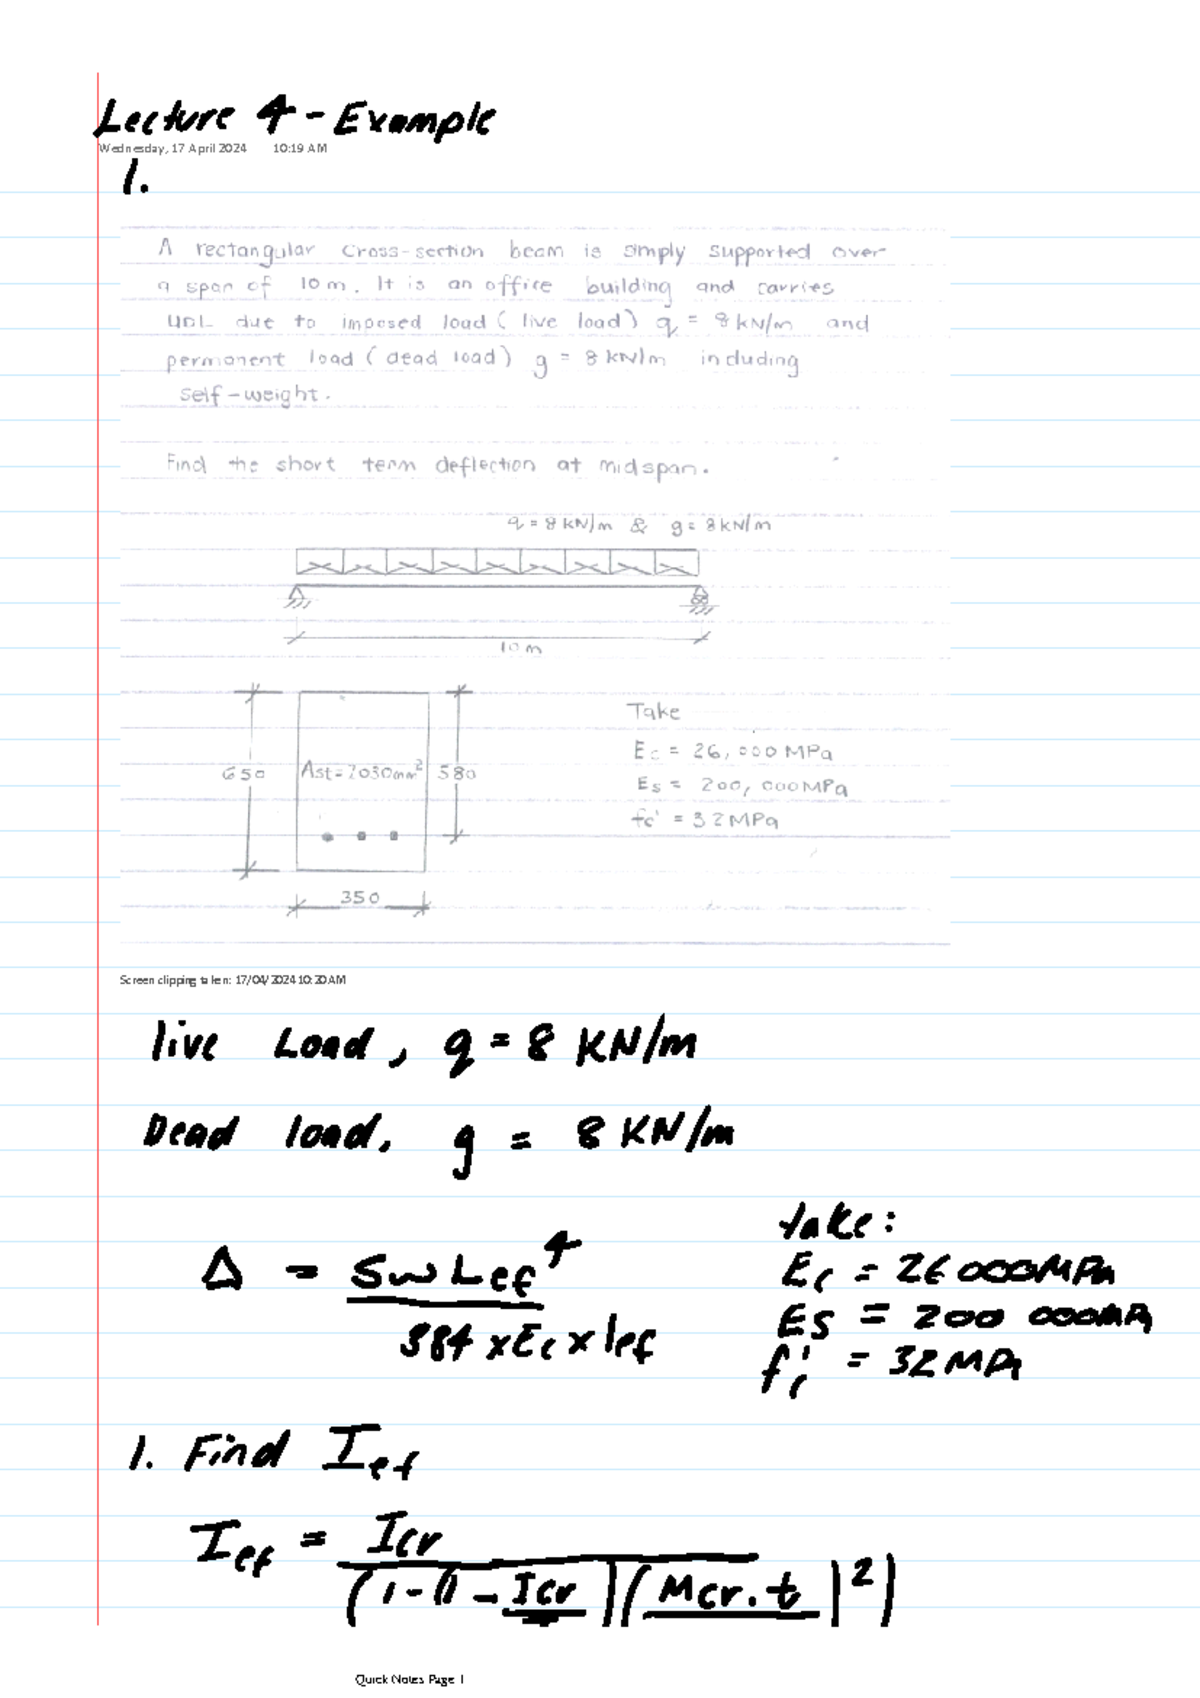 Lecture 4 - Example
Wednesday, 17 April 2024 10:19 AM
1.
A rectangular cross-section beam is simply supported over
a span of 10 m. It is an office building and carries
UDL due to imposed load ( live load ) q = 8 kN/m and
permanent load ( dead load ) g = 8 kN/m including
self-weight.
Find the short term deflection at midspan.
q = 8 kN/m & g = 8 kN/m
10 m
Take
Ec = 26,000 MPa
650 Ast = 2030mm² 580
Es = 200,000MPa
fc' = 32 MPa
350
Screen clipping taken: 17/04/2024 10:20 AM
live Load, q = 8 KN/m
Dead load, g = 8 KN/m
take:
Δ = 5wLef⁴
Ec = 26 000MPa
384 x Ec x Ief
Es = 200 000MPa
fc' = 32 MPa
1. Find Ief
Ief = Icr
(1-(1 - Icr)(Mcr.t)²)
Quick Notes Page 1